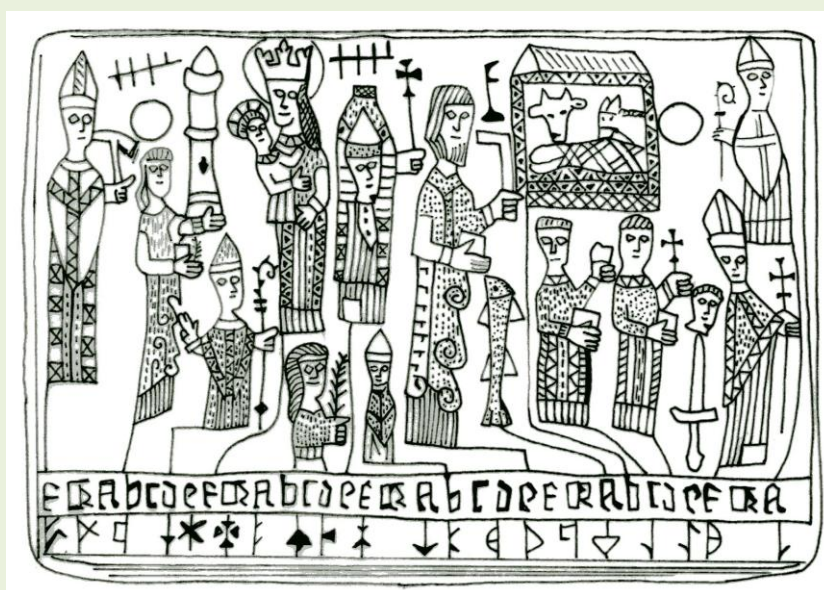 F G A b c d e F G A b c d e F G A b c d e F G A b c d e F G A